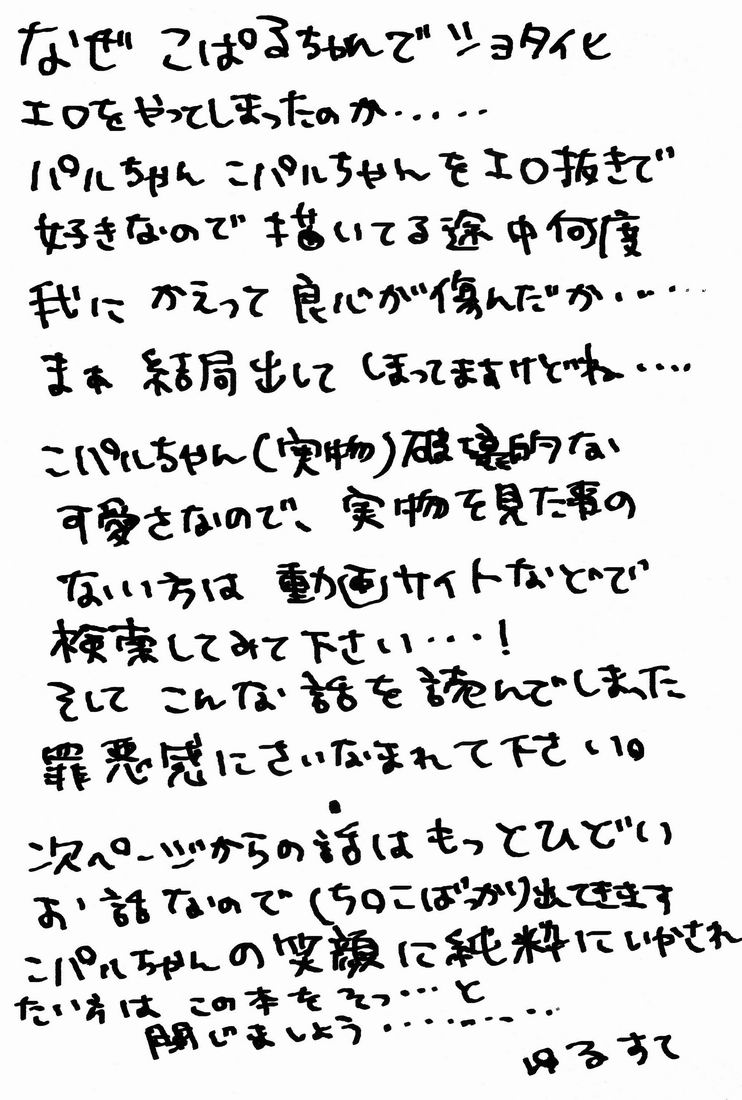 なぜ こぱるちゃんで ショタイヒ
エロをやってしまったのか・・・・・
パルちゃん こパルちゃんをエロ抜きで
好きなので 描いてる途中何度
我に かえって 良心が傷んだか・・・・・
まぁ 結局出して しまってますけどね・・・・
こパルちゃん(実物)破壊的な
可愛さなので、実物を見た事の
ないい方は 動画サイトなどで
検索してみて下さい・・・!
そして こんな話を読んでしまった
罪悪感にさいなまれて下さい。
次ページからの話はもっとひどい
お話なので(ち〇こばっかり)出てきます
こパルちゃんの笑顔に純粋にいかされ
たい方は この本をそっ・・・と
閉じましょう・・・・・・・・・
ゆるすて